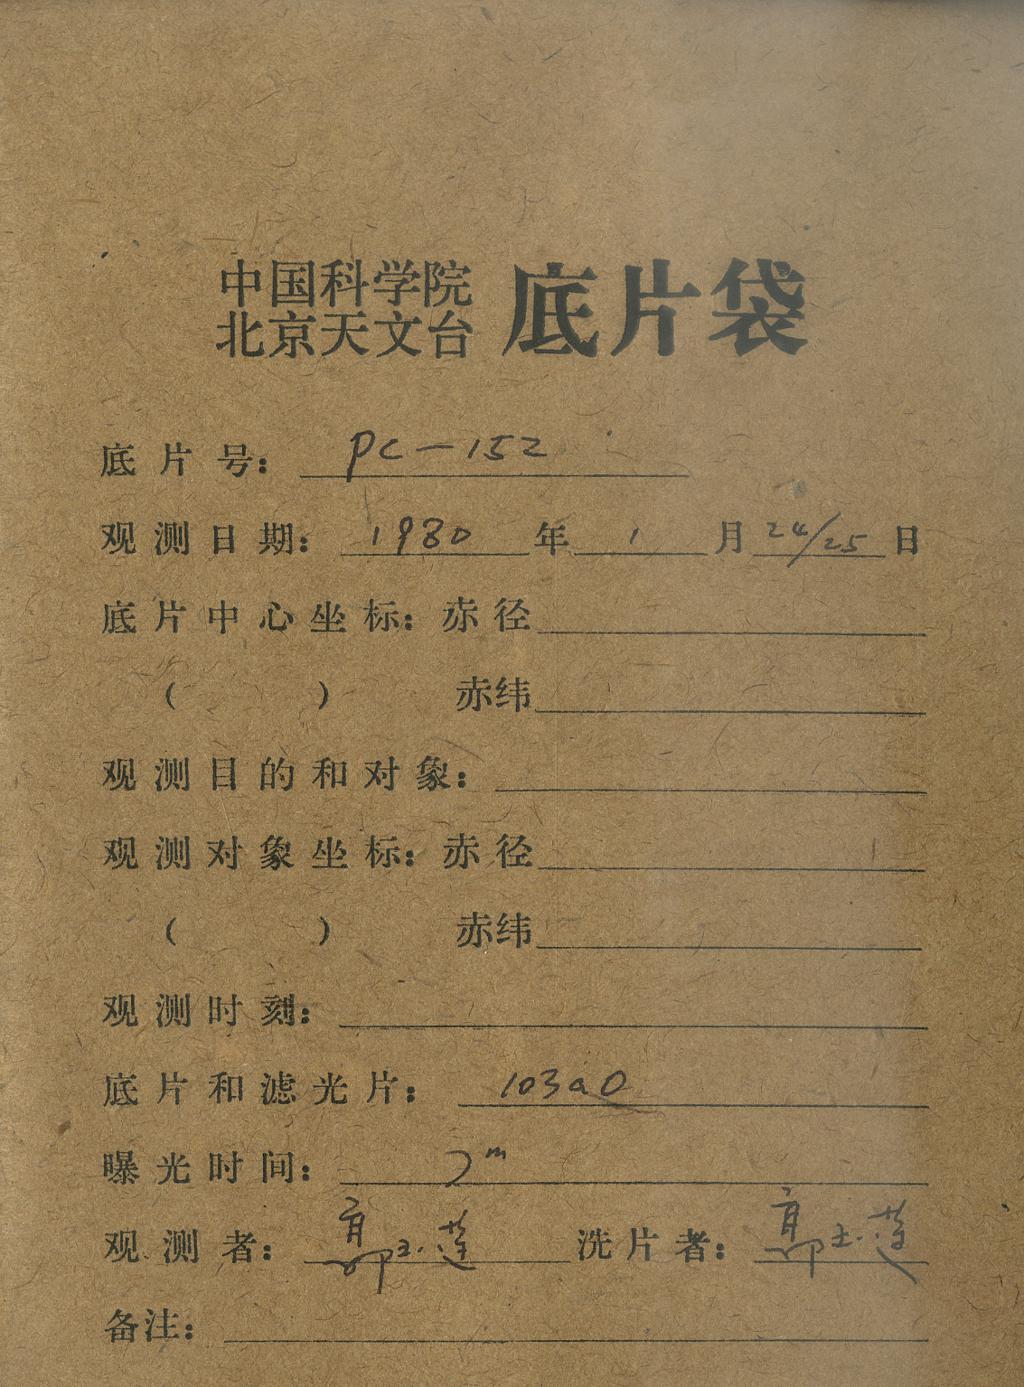 中国科学院
北京天文台 底片袋
底片号: PC-152
观测日期: 1980年1月24/25日
底片中心坐标: 赤径
( ) 赤纬
观测目的和对象:
观测对象坐标: 赤径
( ) 赤纬
观测时刻:
底片和滤光片: 103aO
曝光时间: 2m
观测者: 郭玉莲 洗片者: 郭玉莲
备注: